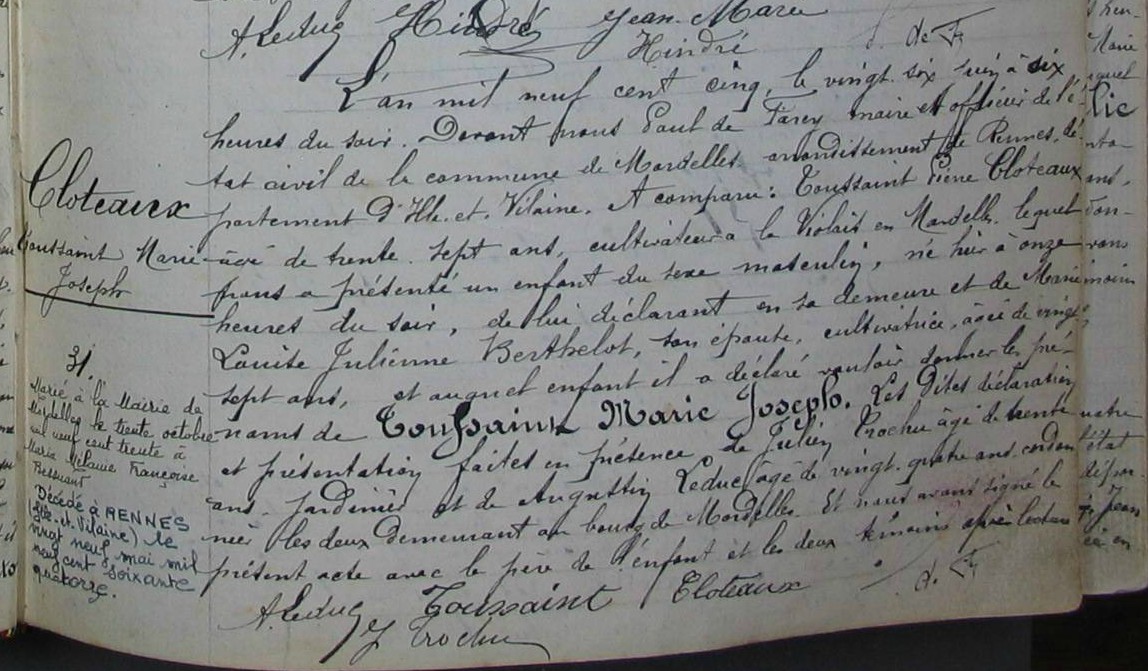 A. Leduc Hindré Jean-Marie
Hindré d. de F
L'an mil neuf cent cinq, le vingt-six juin à six
heures du soir. Devant nous Paul de Farcy maire et officier de l'é-
tat civil de la commune de Mordelles arrondissement de Rennes, dé-
partement d'Ille-et-Vilaine. A comparu: Toussaint Pierre Cloteaux
âgé de trente-sept ans, cultivateur à la Violais en Mordelles, lequel
nous a présenté un enfant du sexe masculin, né hier à onze
heures du soir, de lui déclarant en sa demeure et de Marie
Louise Julienne Berthelot, son épouse, cultivatrice, âgée de vingt
sept ans, et auquel enfant il a déclaré vouloir donner les pré-
noms de Toussaint Marie Joseph. Les dites déclaration
et présentation faites en présence de Julien Trochu âgé de trente
ans, jardinier et de Augustin Leduc âgé de vingt-quatre ans cordon
nier les deux demeurant au bourg de Mordelles. Et nous avons signé le
présent acte avec le père de l'enfant et les deux témoins après lecture
A. Leduc Toussaint Cloteaux d. F
J Trochu
Cloteaux
Toussaint Marie
Joseph
31.
Marié à la Mairie de
Mordelles le trente octobre
mil neuf cent trente à
Marie Mélanie Françoise
Bessuart
Décédé à RENNES
(Ille-et-Vilaine) le
vingt neuf mai mil
neuf cent soixante
quatorze.